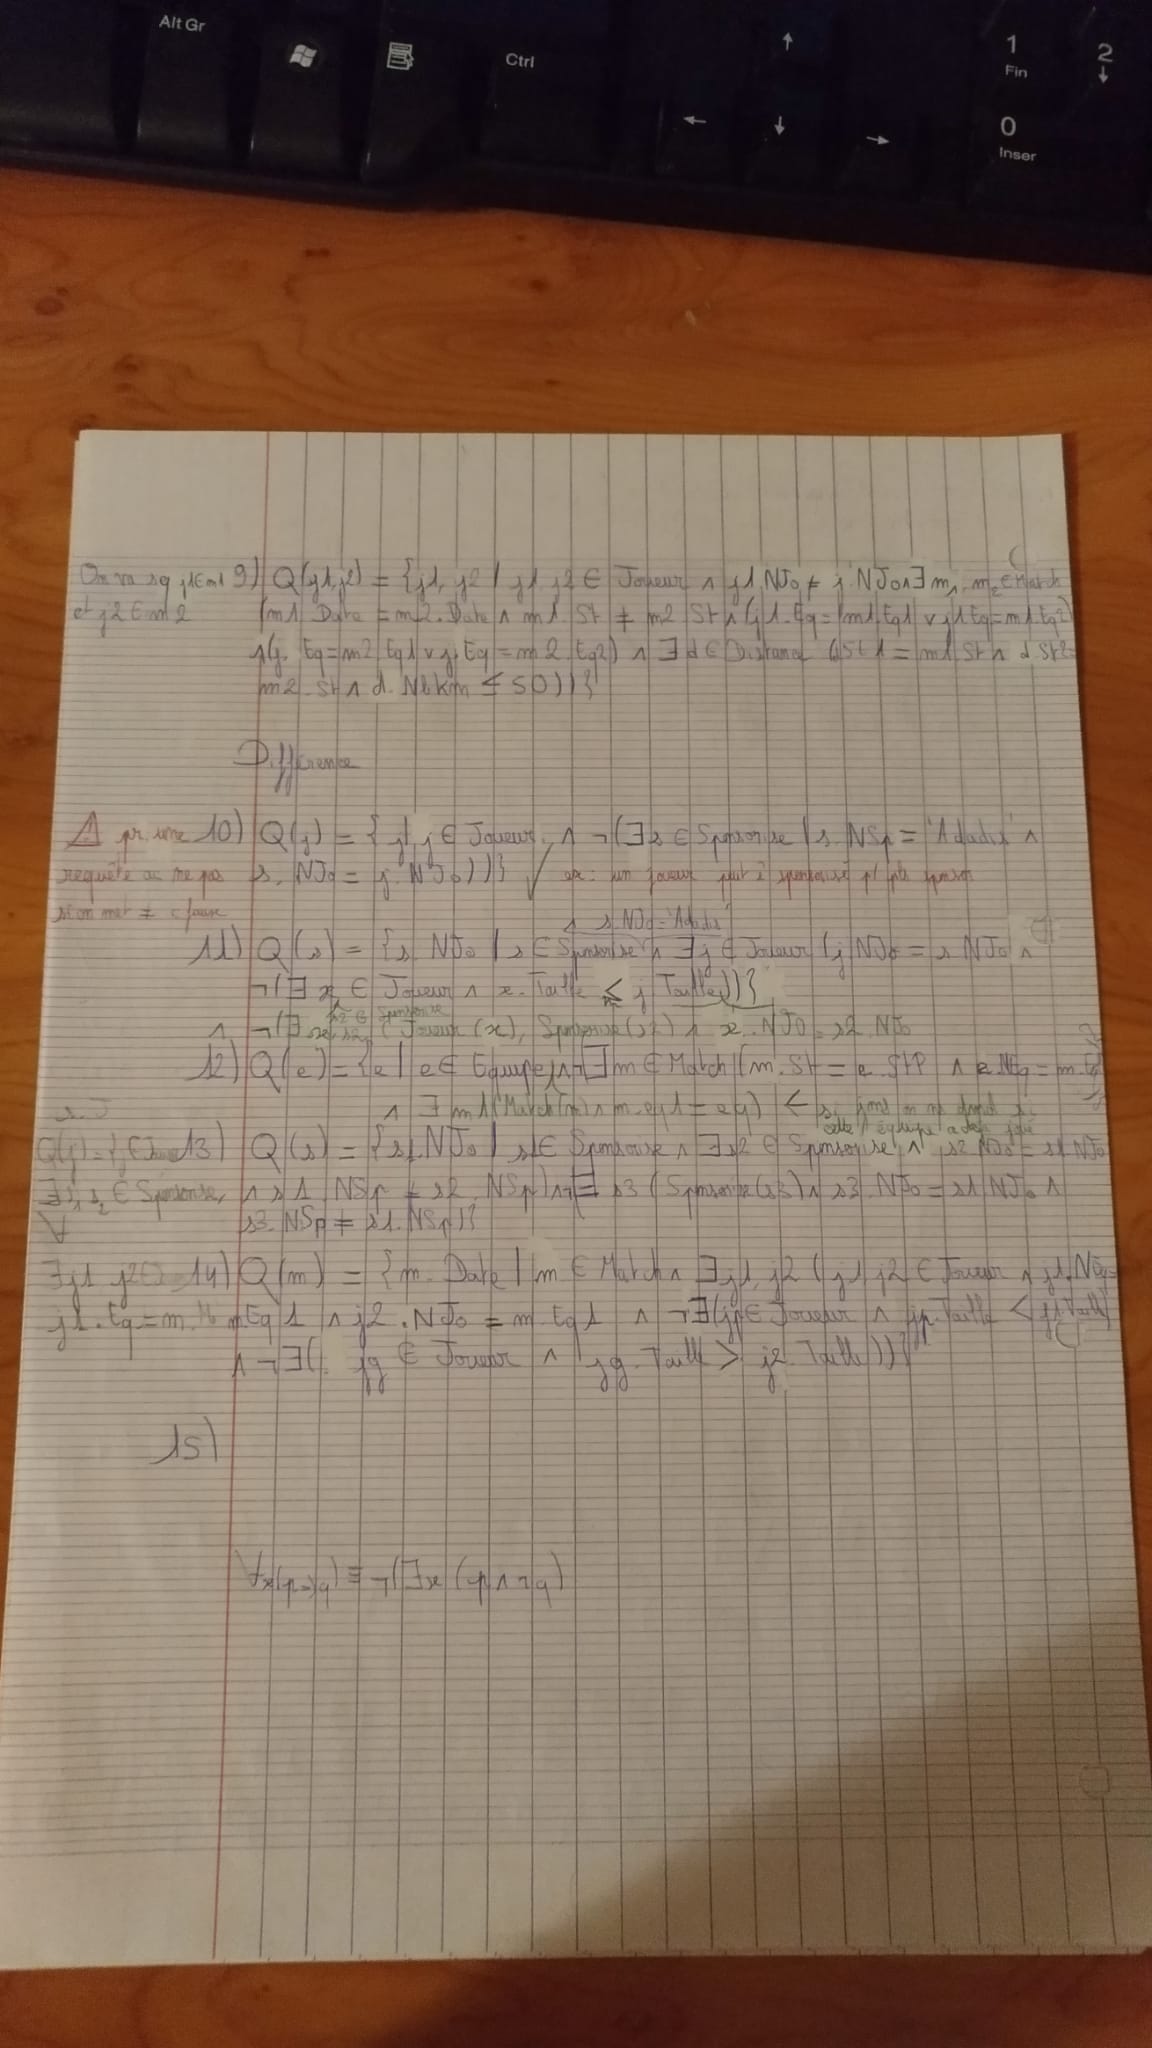 Alt Gr
Ctrl
1
Fin
2
0
Inser
On va sq j1∈m1
et j2∈m2
9) Q(j1,j2) = {j1, j2 / j1, j2 ∈ Joueur ∧ j1.NJo ≠ j.NJo ∧ ∃ m1, m2 ∈ Match
(m1.Date = m2.Date ∧ m1.St ≠ m2.St ∧ (j1.Eq = m1.Eq1 ∨ j1.Eq = m1.Eq2)
∧(j.Eq = m2.Eq1 ∨ j.Eq = m2.Eq2) ∧ ∃ d ∈ Distance (d.St1 = m1.St ∧ d.St2 =
m2.St ∧ d.Nbkm ≤ 50))}
Différence
⚠ pr. une
requête ac ne pas
si on met ≠ c faux
10) Q(j) = { j / j ∈ Joueur ∧ ¬(∃ s ∈ Sponsorise / s.NSp = 'Adadis' ∧
s.NJo = j.NJo))} ✓ ex: un joueur peut ê sponsorisé p/ pls sponsor
∧ s.NJo = 'Adadis'
11) Q(s) = {s.NJo / s ∈ Sponsorise ∧ ∃ j ∈ Joueur (j.NJo = s.NJo ∧
¬(∃ x ∈ Joueur ∧ x.Taille ≤ j.Taille))}
s2 ∈ Sponsorise
∧ ¬(∃ x, s2 ( Joueur (x), Sponsorise(s2) ∧ x.NJo = s2.NJo
12) Q(e) = {e / e ∈ Equipe ∧ ¬∃ m ∈ Match (m.St = e.StP ∧ e.NEq = m.Eq
∧ ∃ m1(Match(m) ∧ m.eq1 = eq) ← sinon on ne prend
cette équipe a déjà joué
13) Q(s) = {s1.NJo / s1 ∈ Sponsorise ∧ ∃ s2 ∈ Sponsorise ∧ s2.NJo = s1.NJo
∃ s1, s2 ∈ Sponsorise,
∀
∧ s1.NSp ≠ s2.NSp) ∧ ¬∃ s3 (Sponsorise(s3) ∧ s3.NJo = s1.NJo ∧
s3.NSp ≠ s1.NSp)}
∃ j1 j2
14) Q(m) = { m.Date / m ∈ Match ∧ ∃ j1, j2 (j1 j2 ∈ Joueur ∧ j1.NEq =
j1.Eq = m.
m.Eq1 ∧ j2.NJo = m.Eq1 ∧ ¬∃(jp ∈ Joueur ∧ jp.Taille < j1.Taille)
∧ ¬∃( jg ∈ Joueur ∧ jg.Taille > j2.Taille))}
15)
∀x(p⇒q) ≡ ¬(∃x (p ∧ ¬q)